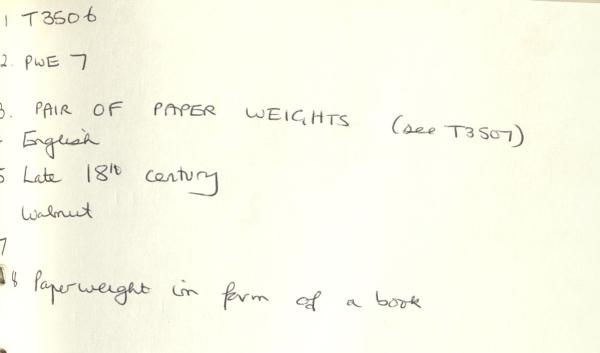 1 T3506
2. PWE 7
3. PAIR OF PAPER WEIGHTS (see T3507)
English
5 Late 18th century
Walnut
7
8 Paperweight in form of a book